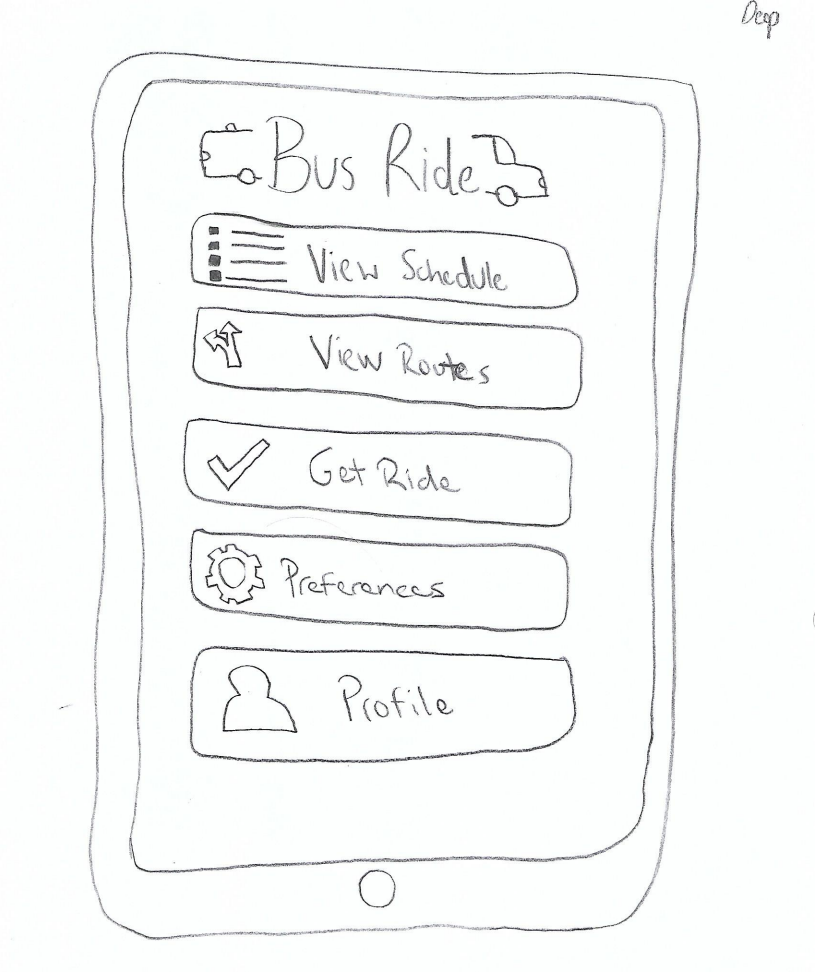 Deep
Bus Ride
View Schedule
View Routes
Get Ride
Preferences
Profile